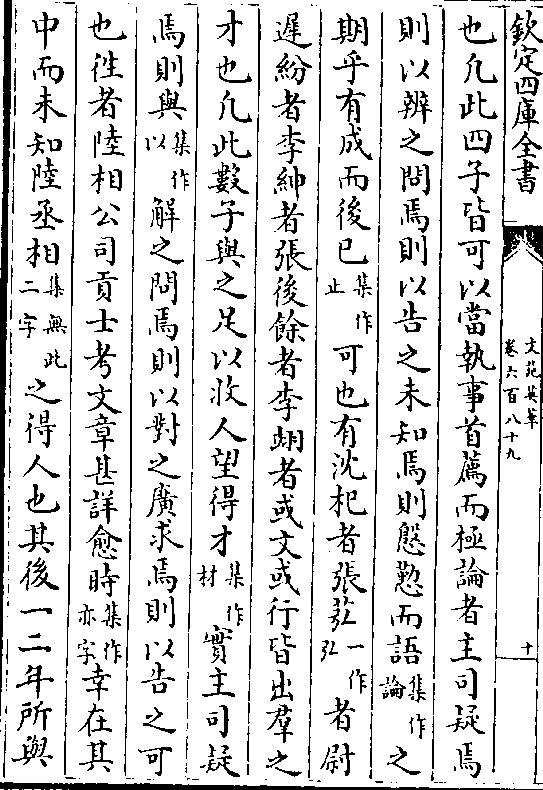 欽定四庫全書
文苑英華
卷六百八十九
十
也凡此四子皆可以當執事首薦而極論者主司疑焉
則以辨之問焉則以告之未知焉則慇懃而語集作論之
期乎有成而後已集作止可也有沈杞者張苰一作弘者尉
遲紛者李紳者張後餘者李翊者或文或行皆出羣之
才也凡此數子與之足以收人望得才集作材實主司疑
焉則與集作以解之問焉則以對之廣求焉則以告之可
也徃者陸相公司貢士考文章甚詳愈時集作亦字幸在其
中而未知陸丞相集無此二字之得人也其後一二年所與